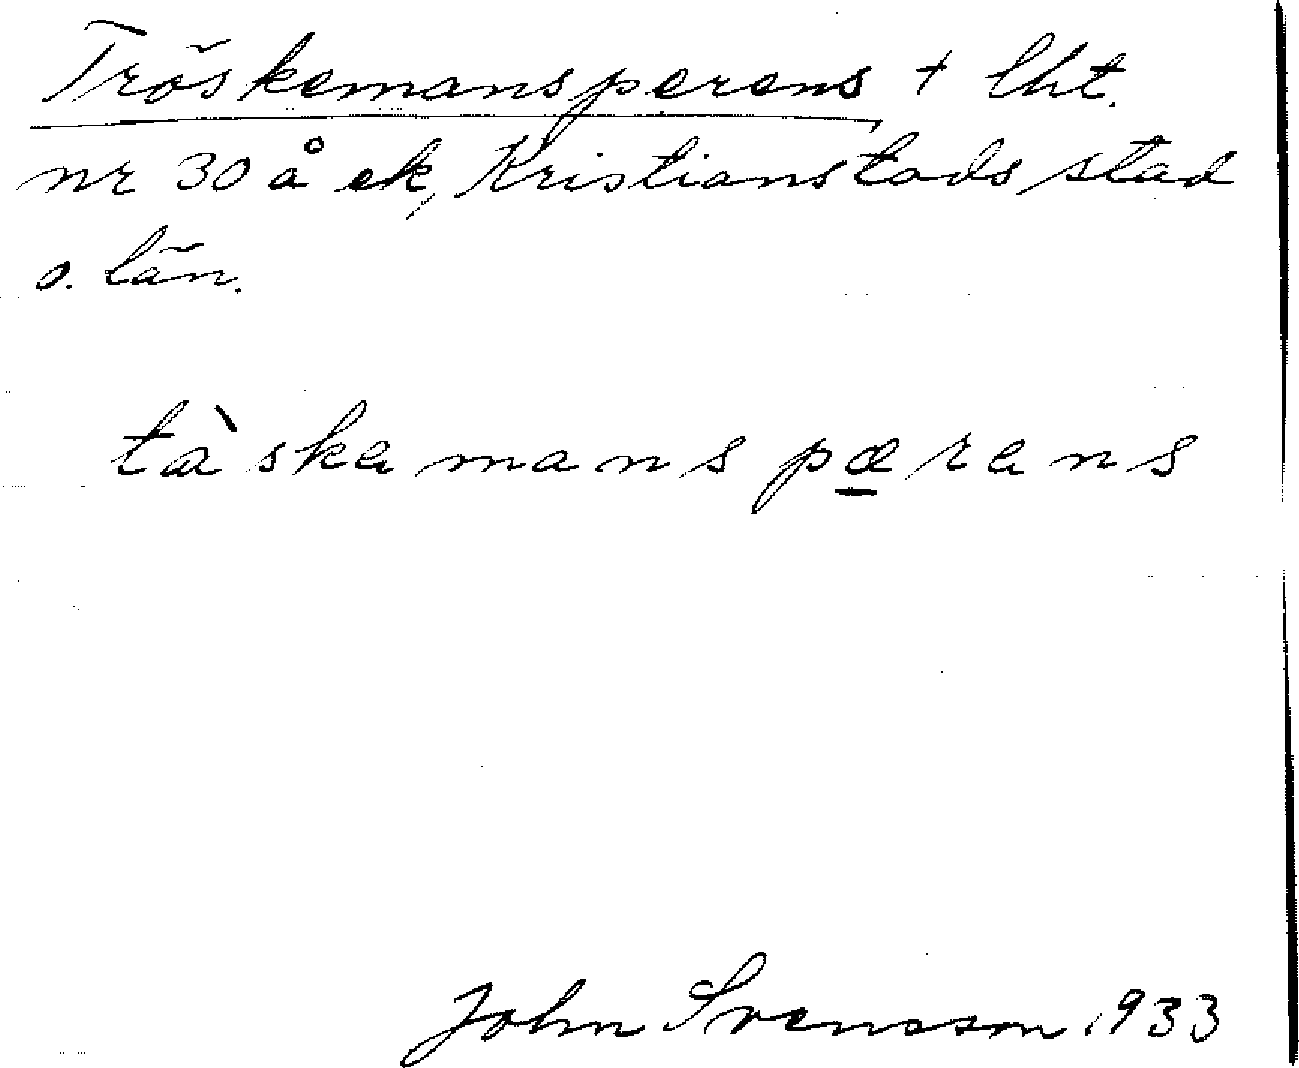 Tröskemansperens + lht.
nr 30 å ek, Kristianstads stad
o. län.
tàskamanspærans
John Svensson 1933